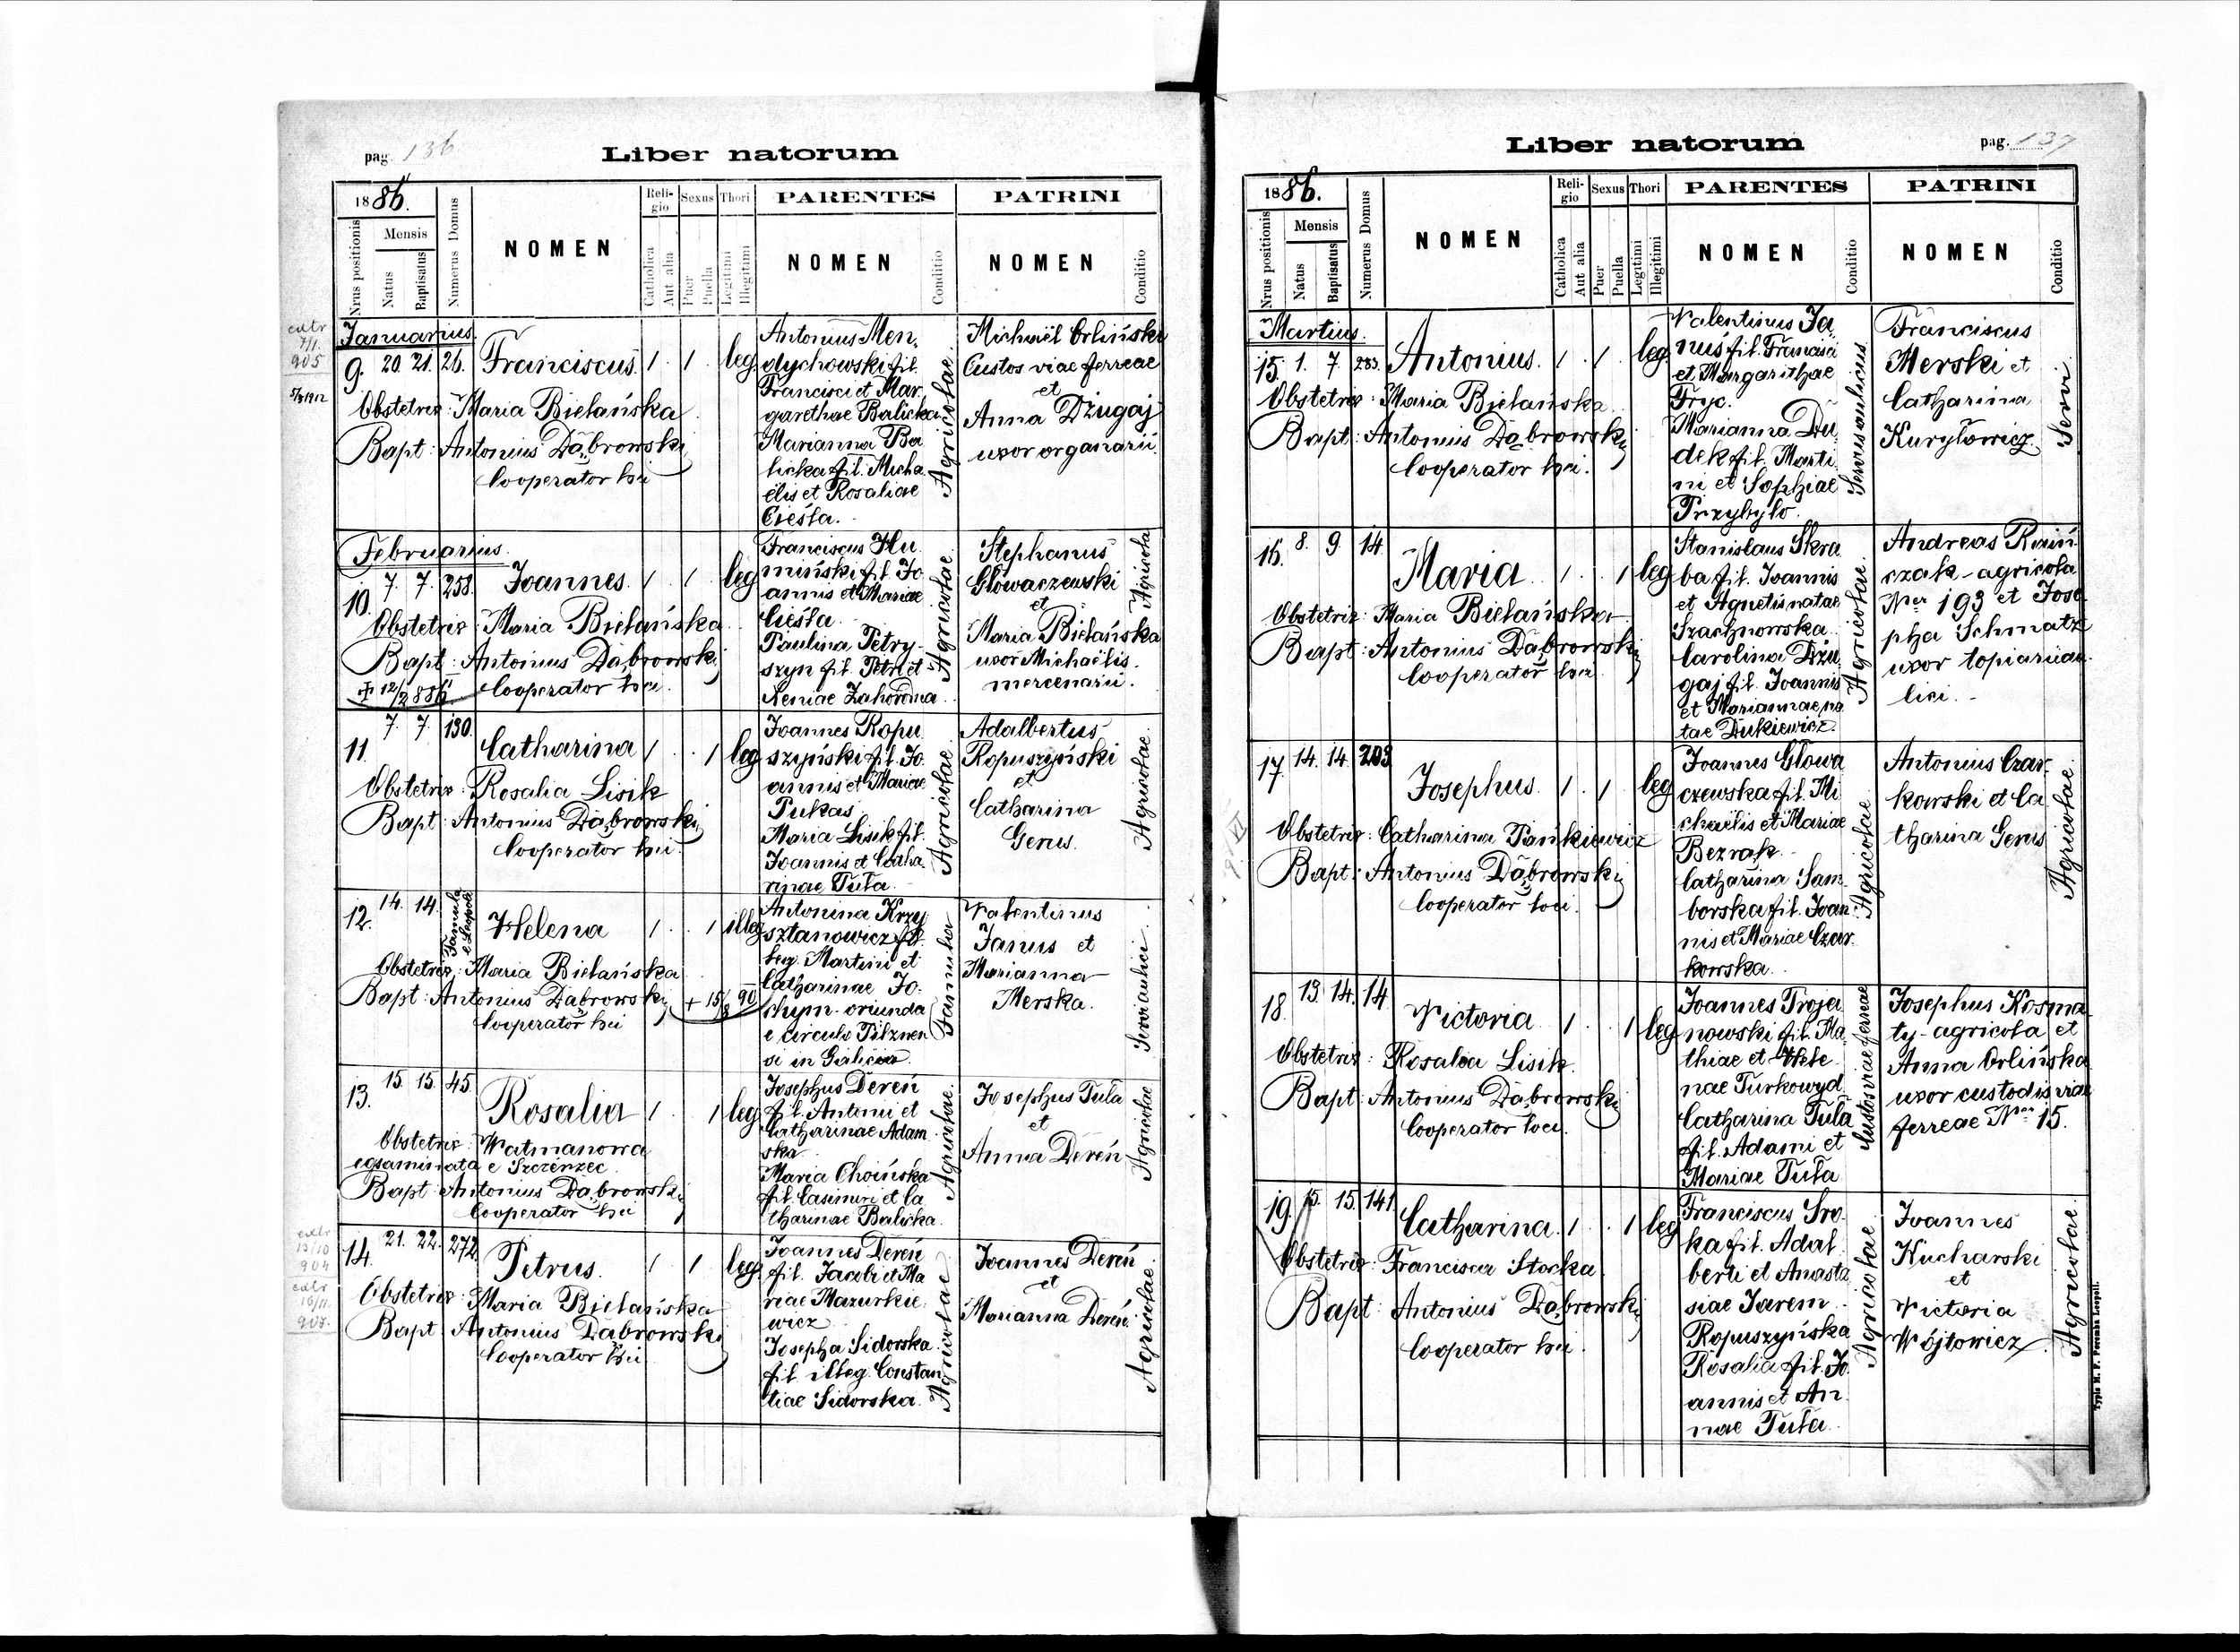 pag. 136
Liber natorum
1886.
Nrus positionis
Mensis
Natus
Baptisatus
Numerus Domus
NOMEN
Religio
Catholica
Aut alia
Sexus
Puer
Puella
Thori
Legitimi
Illegitimi
PARENTES
NOMEN
Conditio
PATRINI
NOMEN
Conditio
extr
7/1
905
5/3 1912
Januarius.
9. 20. 21. 26. Franciscus. 1. 1. leg.
Obstetrix: Maria Bielańska
Bapt: Antonius Dąbrowski
Cooperator loci
Antonius Men,
dychowski fil.
Francisci et Mar,
garethae Balicka
Marianna Ba
licka fil. Micha
ëlis et Rosaliae
Cieśla.
Agricolae
Michaël Orliński
Custos viae ferreae
et
Anna Dżugaj
uxor organarii.
Februarius.
10. 7. 7. 258. Joannes. 1. 1. leg
Obstetrix: Maria Bielańska
Bapt: Antonius Dąbrowski
+ 12/2 886 Cooperator loci.
Franciscus Hu
miński fil. Jo
annis et Mariae
Cieśla.
Paulina Petry-
szyn fil. Petri et
Xeniae Zahorodna.
Agricolae
Stephanus
Głowaczewski
et
Maria Bielańska
uxor Michaëlis
mercenarii.
Agricola
11. 7. 7. 130. Catharina 1. 1 leg
Obstetrix: Rosalia Lisik
Bapt: Antonius Dąbrowski
Cooperator loci.
Joannes Ropu
szyński fil. Jo.
annis et Mariae
Pukas
Maria Lisik fil.
Joannis et Catha
rinae Tuła.
Agricolae
Adalbertus
Ropuszyński
et
Catharina
Genus.
Agricolae
12. 14. 14. Famula e Leopoli Helena 1. 1 illeg
Obstetrix: Maria Bielańska
Bapt: Antonius Dąbrowski + 15/8 90
Cooperator loci
Antonina Krzy
sztanowicz fil.
leg. Martini et
Catharinae Jo-
chym oriunda
e circulo Pilznen
si in Galicia.
Famula
Valentinus
Janus et
Marianna
Merska.
Servi aulici
13. 15. 15. 45. Rosalia 1. 1 leg
Obstetrix: Watmanowa
egsaminata e Szczerzec.
Bapt: Antonius Dąbrowski
Cooperator loci
Josephus Dereń
fil. Antonii et
Catharinae Adam
ska
Maria Choińska
fil. Casimiri et Ca
tharinae Balicka.
Agricolae
Josephus Tuła
et
Anna Dereń
Agricolae
extr
13/10
904
extr
16/11
907.
14. 21. 22. 272. Petrus. 1. 1. leg.
Obstetrix: Maria Bielańska
Bapt: Antonius Dąbrowski
Cooperator loci
Joannes Dereń
fil. Jacobi et Ma
riae Mazurkie,
wicz
Josepha Sidorska
fil. illeg. Constan
tiae Sidorska.
Agricolae
Joannes Dereń
et
Marianna Dereń.
Agricolae
Liber natorum
pag. 137
1886.
Nrus positionis
Mensis
Natus
Baptisatus
Numerus Domus
NOMEN
Religio
Catholica
Aut alia
Sexus
Puer
Puella
Thori
Legitimi
Illegitimi
PARENTES
NOMEN
Conditio
PATRINI
NOMEN
Conditio
Martius.
15. 1. 7. 283. Antonius. 1. 1. leg.
Obstetrix: Maria Bielańska
Bapt: Antonius Dąbrowski
Cooperator loci.
Valentinus Ja,
nus fil. Francisci
et Margarithae
Fryc.
Marianna Du,
dek fil. Marti
ni et Sophiae
Przybyło.
Servus aulicus
Franciscus
Merski et
Catharina
Kuryłowicz.
Servi
16. 8. 9. 14. Maria 1. 1 leg
Obstetrix: Maria Bielańska
Bapt: Antonius Dąbrowski
Cooperator loci
Stanislaus Skra
ba fil. Joannis
et Agnetis natae
Szachnowska
Carolina Dżu
gaj fil. Joannis
et Mariannae na
tae Dukiewicz.
Agricolae
Andreas
czak - agricola
Ner 193 et Jose
pha Schmatz
uxor topiarii au
lici.
17. 14. 14. 203. Josephus. 1. 1. leg
Obstetrix: Catharina Pańkiewicz
Bapt: Antonius Dąbrowski
Cooperator loci.
Joannes Głowa
czewska fil. Mi
chaëlis et Mariae
Bezrak.
Catharina Sam
borska fil. Joan
nis et Mariae Czar
kowska.
Agricolae
Antonius Czar
kowski et Ca
tharina Genus
Agricolae
18. 13. 14. 14. Victoria 1. 1 leg
Obstetrix: Rosalia Lisik.
Bapt: Antonius Dąbrowski
Cooperator loci.
Joannes Troja
nowski fil. Ma
thiae et Hele
nae Turkowyd
Catharina Tuła
fil. Adami et
Mariae Tuła
Custos viae ferreae
Josephus Kosma
ty - agricola et
Anna Orlińska
uxor custodis viae
ferreae Ner 15.
19. 15. 15. 141. Catharina. 1. 1 leg
Obstetrix: Francisca Storka
Bapt: Antonius Dąbrowski
Cooperator loci.
Franciscus Sro
ka fil. Adal
berti et Anasta
siae Jarem
Ropuszyńska
Rosalia fil. Jo
annis et An
nae Tuła.
Agricolae
Joannes
Kucharski
et
Victoria
Wójtowicz.
Agricolae
Typis M. F. Poremba Leopoli.